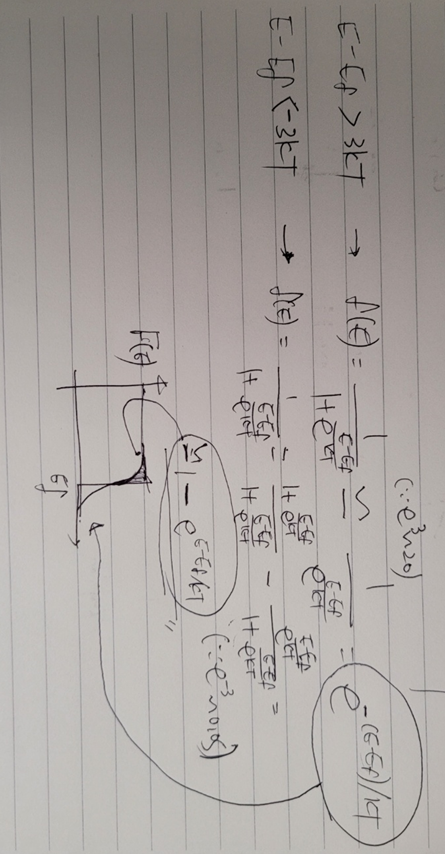 (∵ e^3 ≈ 20)
E-Ef > 3kT → f(E) = 1 / (1 + e^((E-Ef)/kT)) ≃ 1 / e^((E-Ef)/kT) = e^(-(E-Ef)/kT)
E-Ef < -3kT → f(E) = 1 / (1 + e^((E-Ef)/kT)) = (1 + e^((E-Ef)/kT)) / (1 + e^((E-Ef)/kT)) - e^((E-Ef)/kT) / (1 + e^((E-Ef)/kT)) =
≃ 1 - e^(E-Ef/kT) (∵ e^-3 ≈ 0.05)
F(E)
Ef